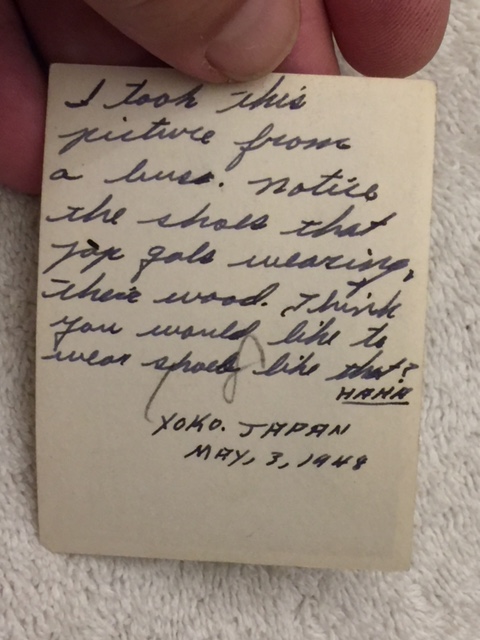 I took this
picture from
a buss. notice
the shoes that
jap gals wearing,
their wood. Think
you would like to
wear shoes like that?
HAHA
YOKO. JAPAN
MAY, 3, 1948